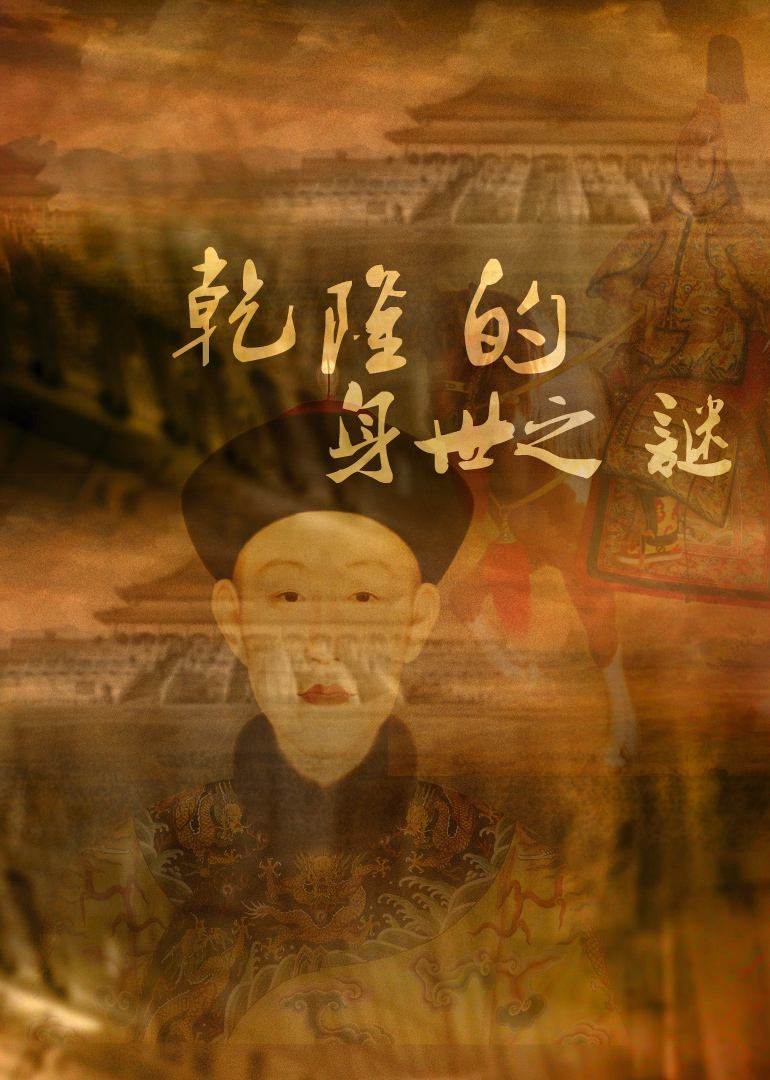 乾隆的
身世之謎